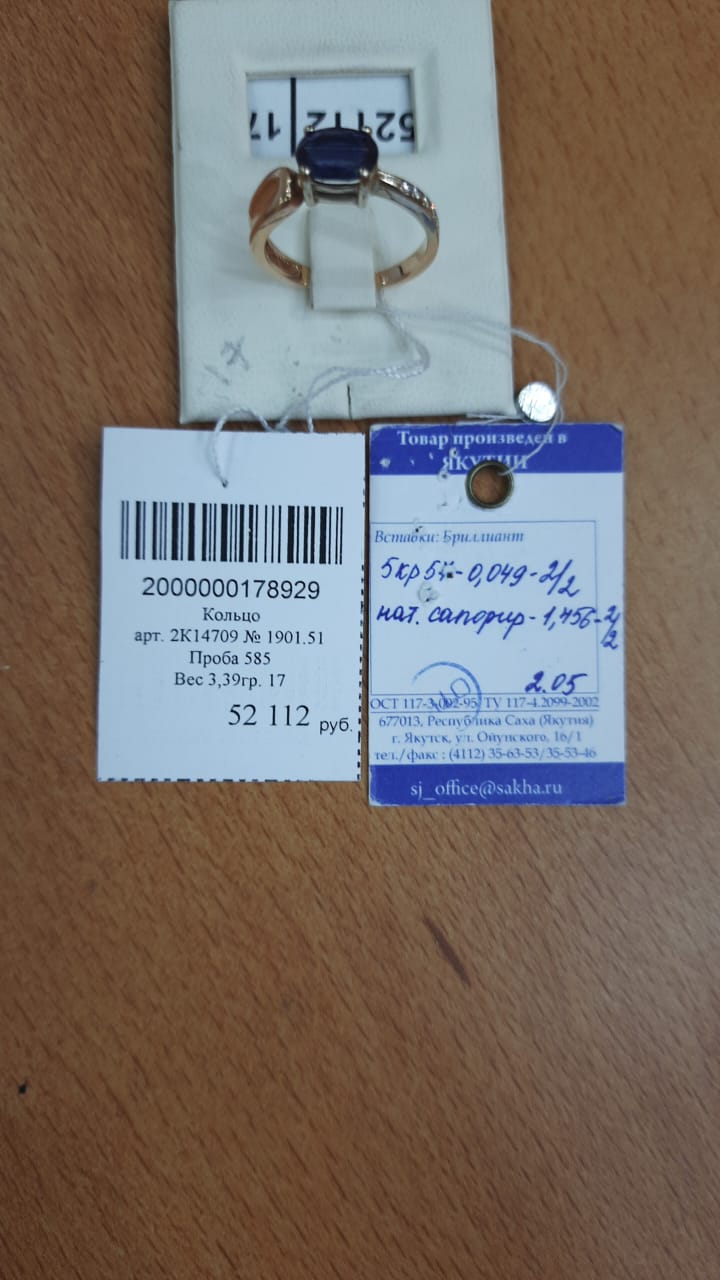 52112
17
17
2000000178929
Кольцо
арт. 2К14709 № 1901.51
Проба 585
Вес 3,39гр. 17
52 112 руб.
Товар произведен в
ЯКУТИИ
Вставки: Бриллиант
5кр57-0,049-2/2
нат. сапфир-1,756-2/2
2.05
ОСТ 117-3-002-95, ТУ 117-4.2099-2002
677013, Республика Саха (Якутия)
г. Якутск, ул. Ойунского, 16/1
тел./факс : (4112) 35-63-53/35-53-46
sj_office@sakha.ru